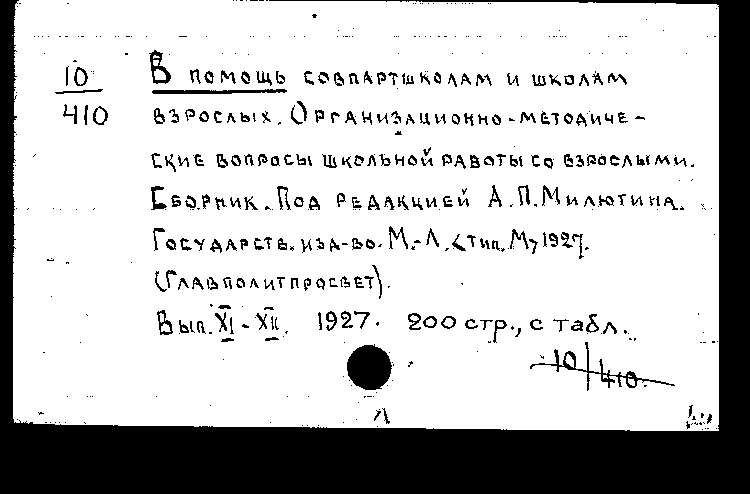 10
410
В помощь совпартшколам и школам
взрослых. Организационно-методиче-
ские вопросы школьной работы со взрослыми.
Сборник. Под редакцией А.П.Милютина.
Государств. изд-во. М.-Л. <тип. М> 1927.
(Главполитпросвет).
Вып. XI-XII. 1927. 200 стр., с табл.
10/410.